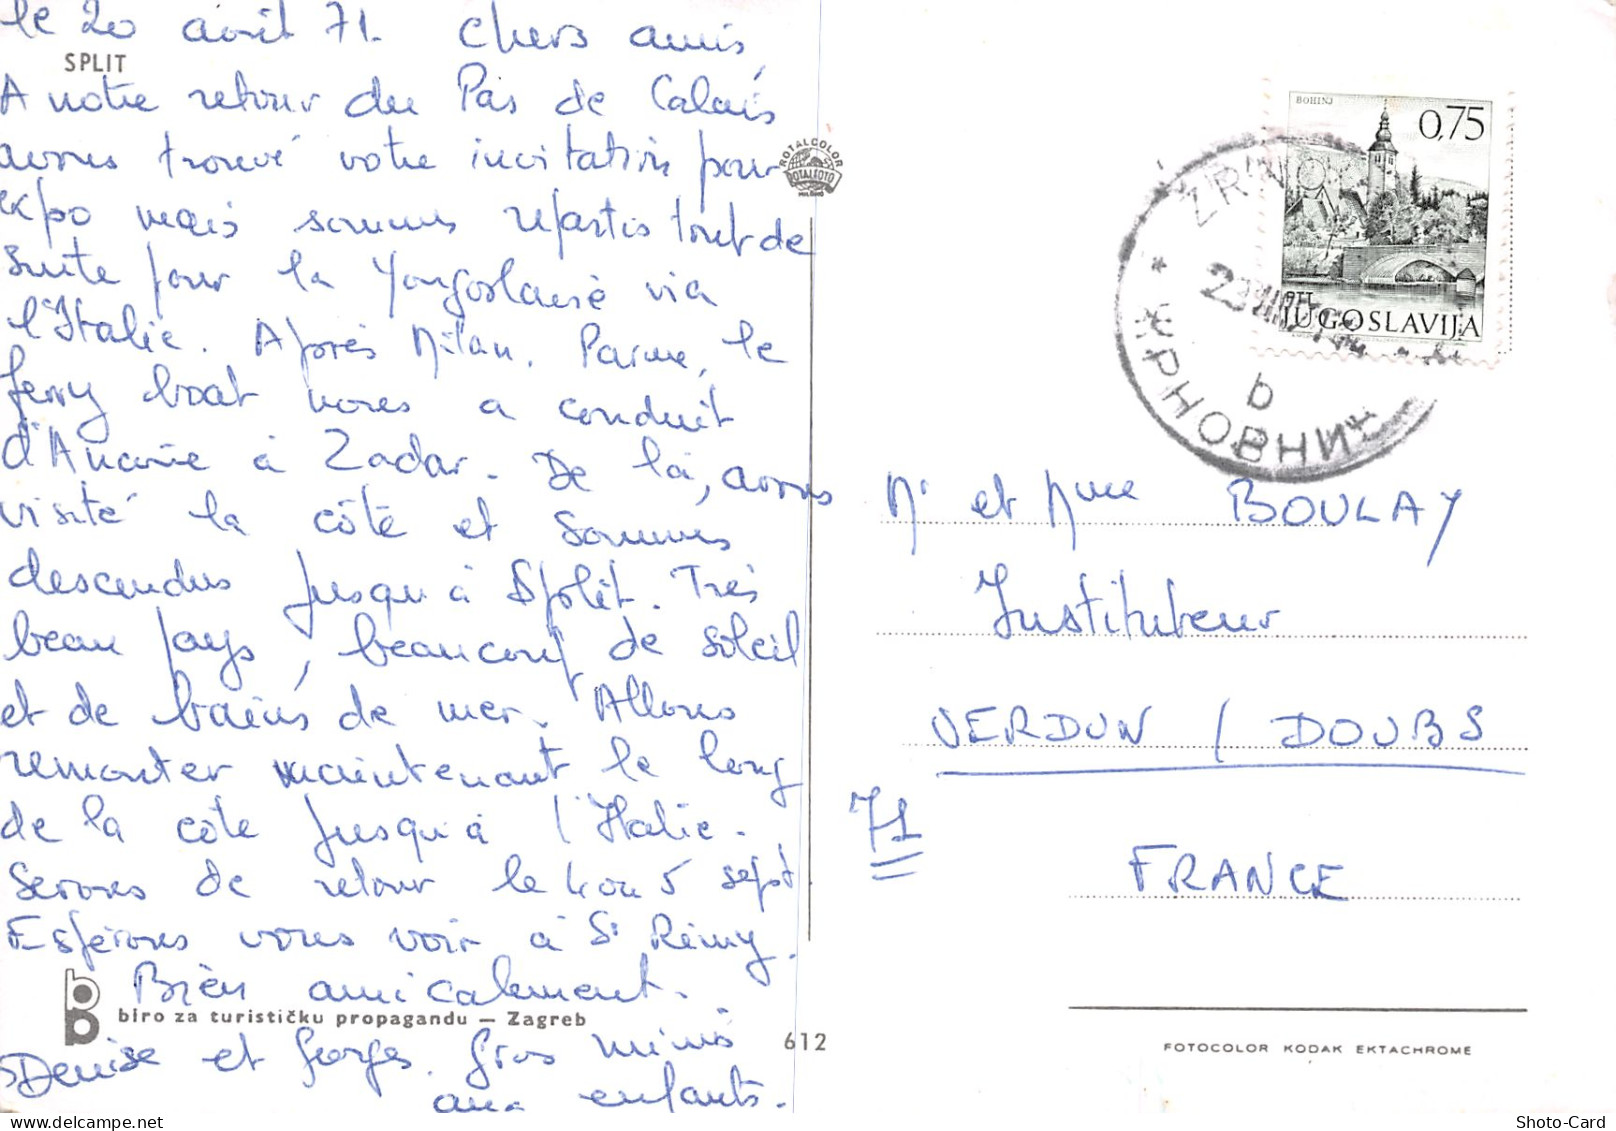 le 20 avril 71. Chers amis,
SPLIT
A notre retour du Pas de Calais
avons trouvé votre invitation pour
expo mais sommes repartis tout de
suite pour la Yougoslavie via
l'Italie. Après Milan, Parme, le
ferry boat nous a conduit
d'Ancône à Zadar. De là, avons
visité la côte et sommes
descendus jusqu'à Split. Très
beau pays, beaucoup de soleil
et de bains de mer. Allons
remonter maintenant le long
de la côte jusqu'à l'Italie.
Serons de retour le 4 ou 5 sept.
Espérons vous voir à St Rémy.
Bien amicalement.
biro za turističku propagandu — Zagreb
Denise et Georges. Gros mimis
aux enfants.
ROTALCOLOR
ROTALFOTO
MILANO
612
BOHINJ
0,75
PTT
JUGOSLAVIJA
b
ЖРНОВНИ
Mr et Mme BOULAY
Instituteur
VERDUN / DOUBS
71
FRANCE
FOTOCOLOR KODAK EKTACHROME
Shoto-Card